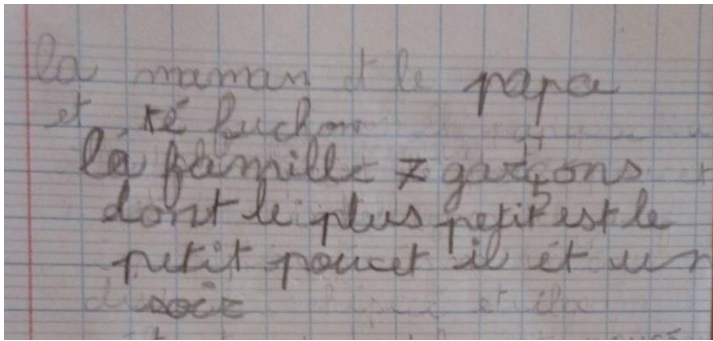 la maman et le papa
et té buchon
la famille 7 garçons
dont le plus petit est le
petit poucet il ét un
soir